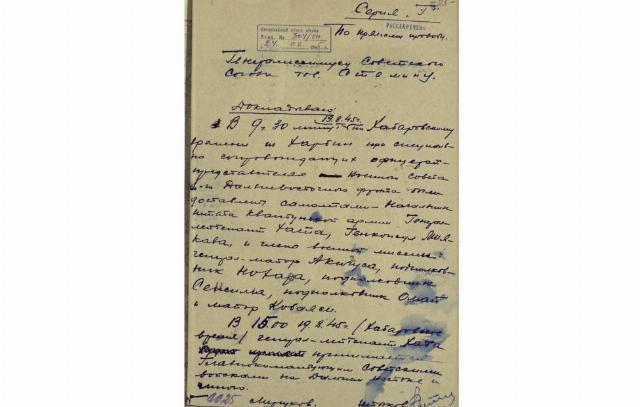 Серия "Г".
РАССЕКРЕЧЕНО
По прямому проводу.
Вход. №
Генералиссимусу Советского
Союза тов. Сталину.
Докладываю:
В 9 ч. 30 минут 19.8.45г. Хабаровскому
времени из Харбин при специаль-
но сопровождающих офицерах-
представителях Военного Совета
1-го Дальневосточного фронта были
доставлены самолетами - Начальник
штаба Квантунской армии Генерал-
лейтенант Хата, Генконсул Мия-
кава, и члены военной миссии:
генерал-майор Акикуса, подполков-
ник Нохара, подполковник
Сейсима, подполковник
и майор Кобаяси.
В 15.00 19.8.45г. /Хабаровское
время/ генерал-лейтенант Хата
Главнокомандующим Советскими
войсками на Дальнем Востоке и
мною.
Мерецков.